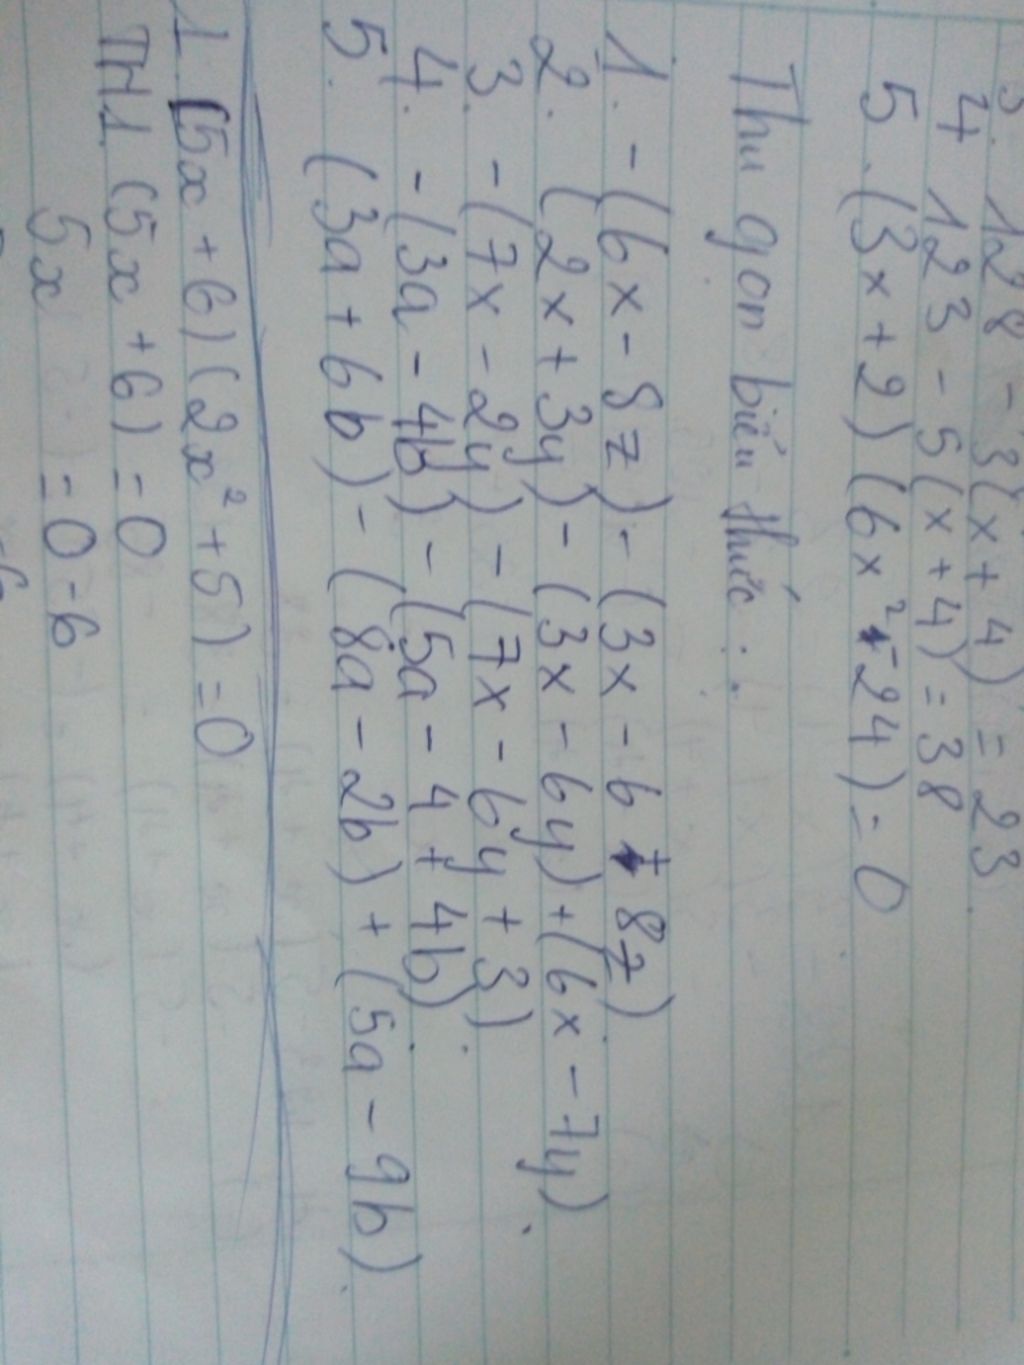 3. 128 - 3(x + 4) = 23
4 123 - 5(x + 4) = 38
5. (3x + 2)(6x² - 24) = 0
Thu gọn biểu thức :
1. - (6x - 8z) - (3x - 6 + 8z)
2. (2x + 3y) - (3x - 6y) + (6x - 7y)
3. - (7x - 2y) - (7x - 6y + 3)
4. - (3a - 4b) - (5a - 4 + 4b)
5. (3a + 6b) - (8a - 2b) + (5a - 9b)
1. (5x + 6)(2x² + 5) = 0
TH1. (5x + 6) = 0
5x = 0 - 6